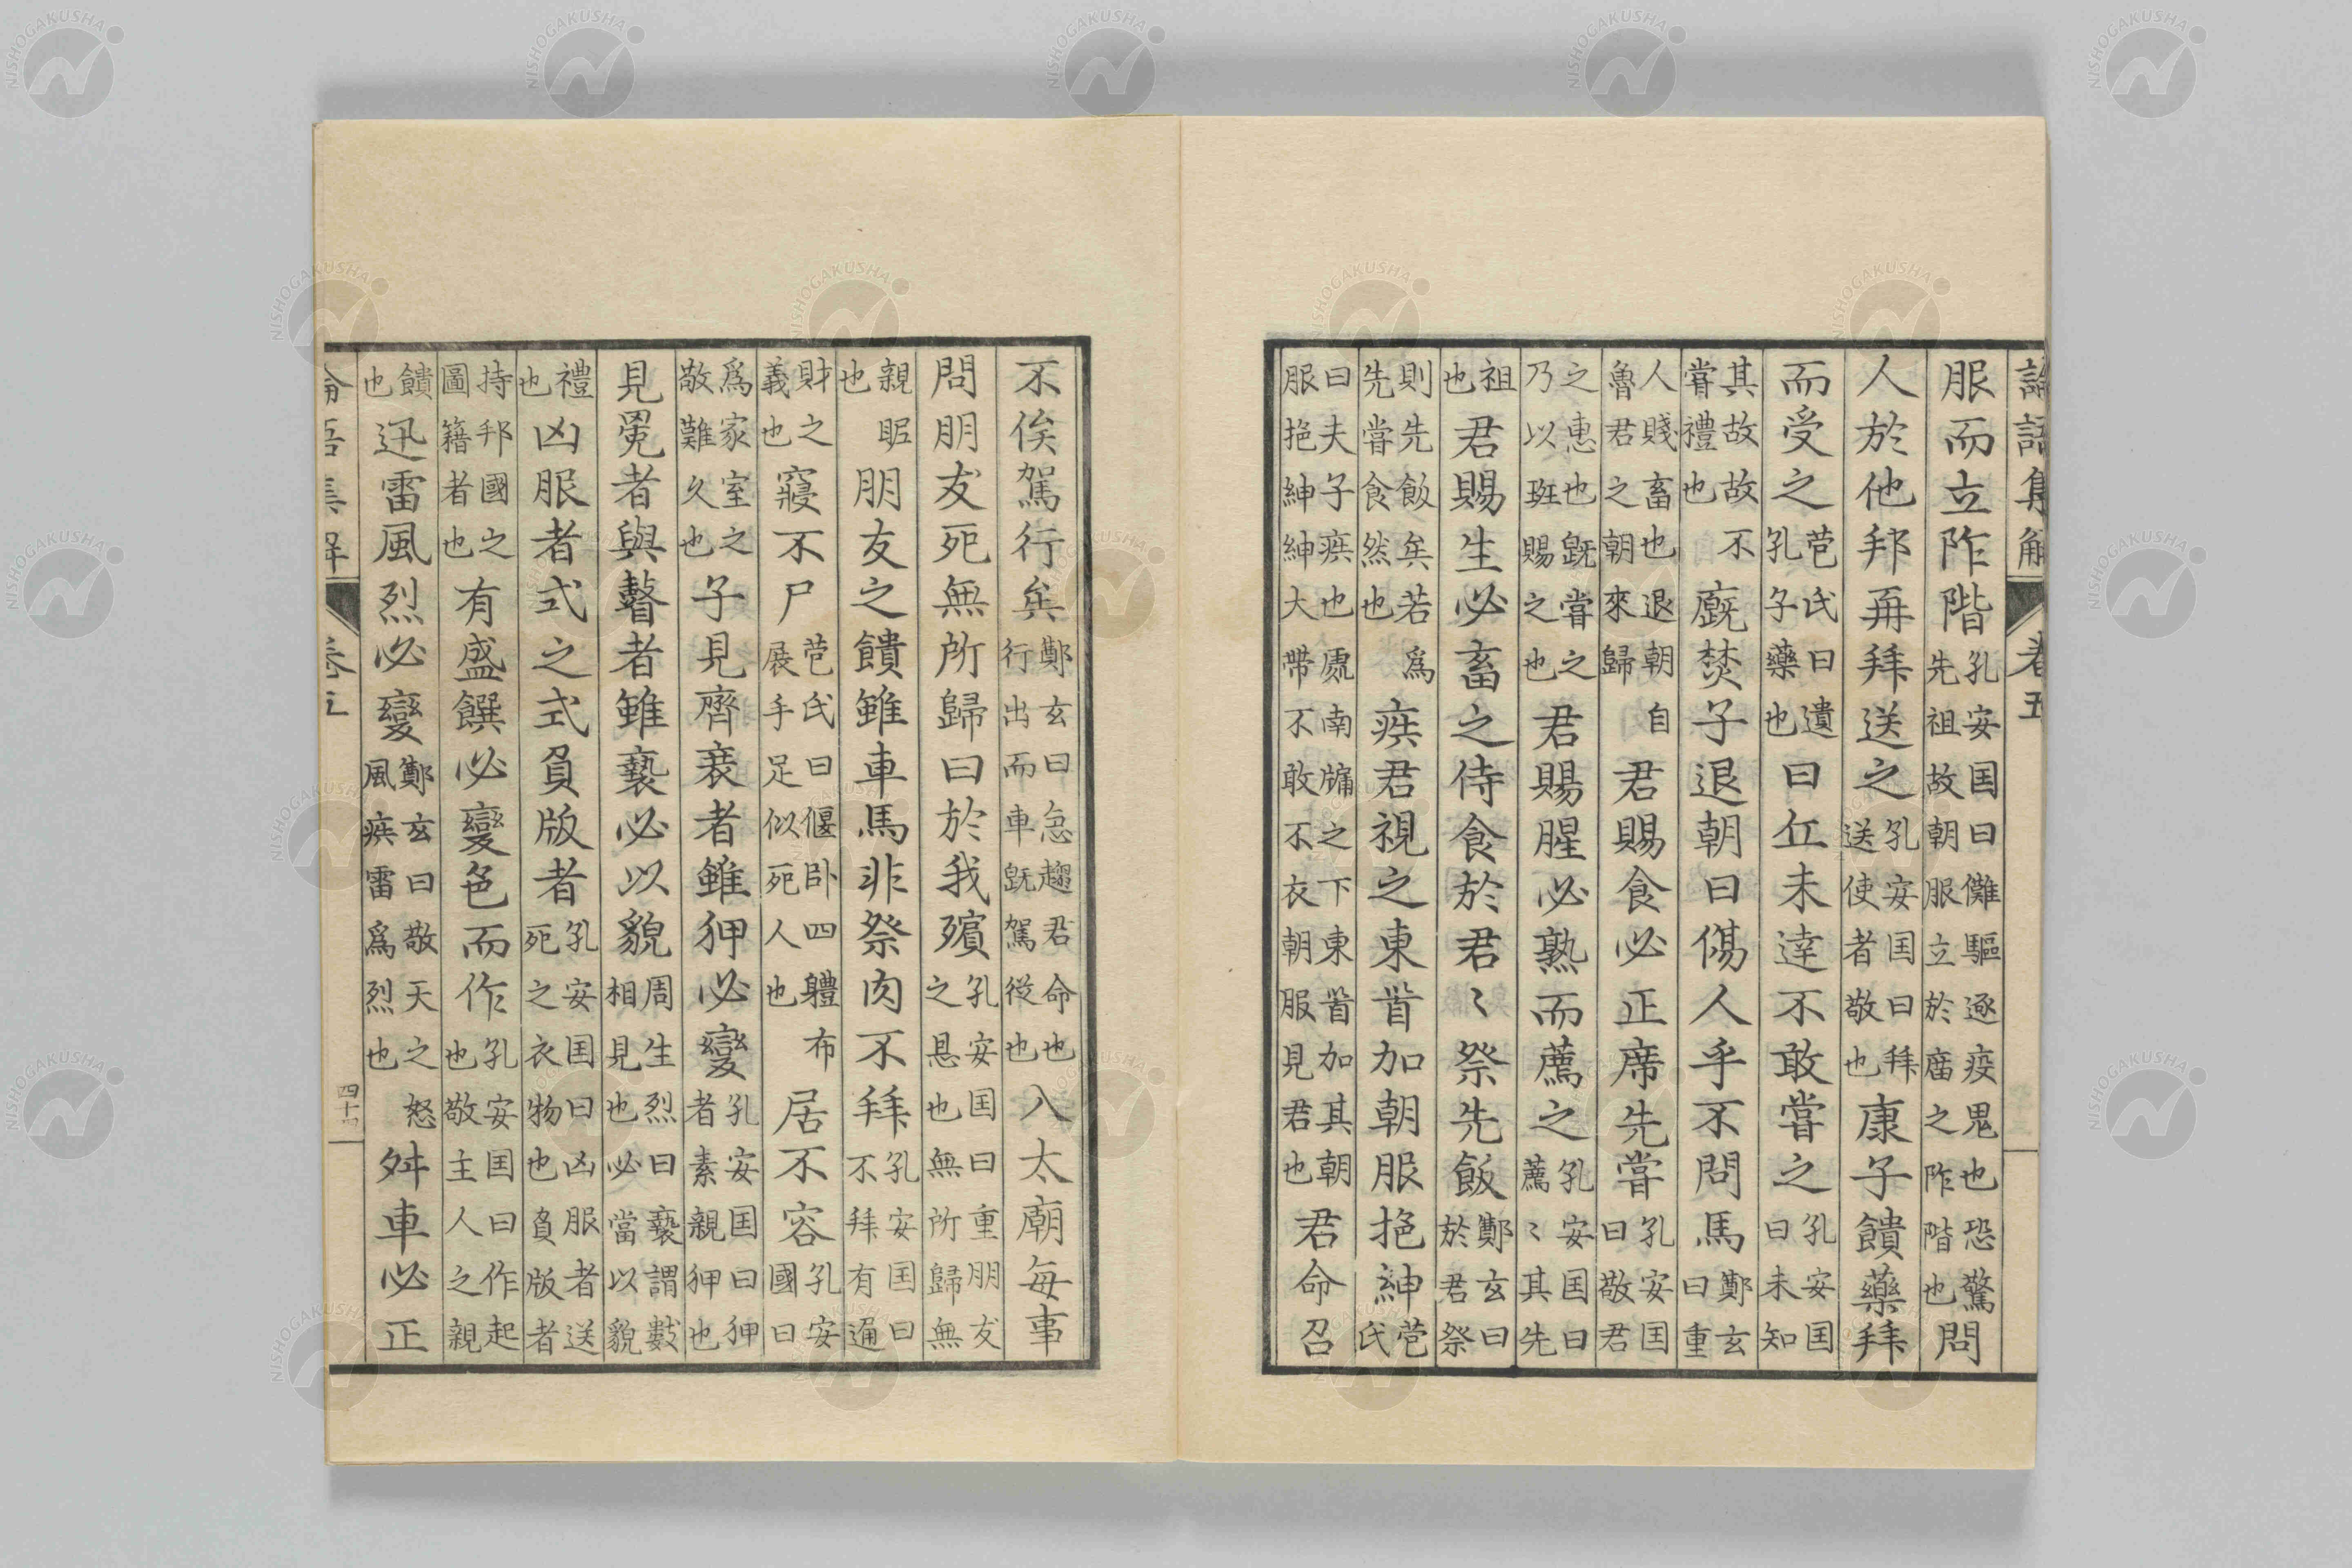 論語集解 卷五
服而立阼階孔安国曰儺驅逐疫鬼也恐驚先祖故朝服立於庿之阼階也問
人於他邦再拜送之孔安国曰拜送使者敬也康子饋藥拜
而受之苞氏曰遺孔子藥也曰丘未達不敢嘗之孔安国曰未知
其故故不嘗禮也廐焚子退朝曰傷人乎不問馬鄭玄曰重
人賤畜也退朝自魯君之朝來歸君賜食必正席先嘗孔安国曰敬君
之惠也既嘗之乃以班賜之也君賜腥必熟而薦之孔安国曰薦〻其先
祖也君賜生必畜之侍食於君〻祭先飯鄭玄曰於君祭
則先飯矣若爲先嘗食然也疾君視之東首加朝服拖紳苞氏
曰夫子疾也處南牖之下東首加其朝服拖紳紳大帶不敢不衣朝服見君也君命召
不俟駕行矣鄭玄曰急趨君命也行出而車既駕從也入太廟每事
問朋友死無所歸曰於我殯孔安国曰重朋友之恩也無所歸無
親昵也朋友之饋雖車馬非祭肉不拜孔安国曰不拜有通
財之義也寢不尸苞氏曰偃卧四體布展手足似死人也居不容孔安國曰
爲家室之敬難久也子見齊衰者雖狎必變孔安国曰狎者素親狎也
見冕者與瞽者雖褻必以貌周生烈曰褻謂數相見也必當以貌
禮也凶服者式之式負版者孔安国曰凶服者送死之衣物也負版者
持邦國之圖籍者也有盛饌必變色而作孔安国曰作起也敬主人之親
饋也迅雷風烈必變鄭玄曰敬天之怒風疾雷爲烈也舛車必正
論語集解 卷五